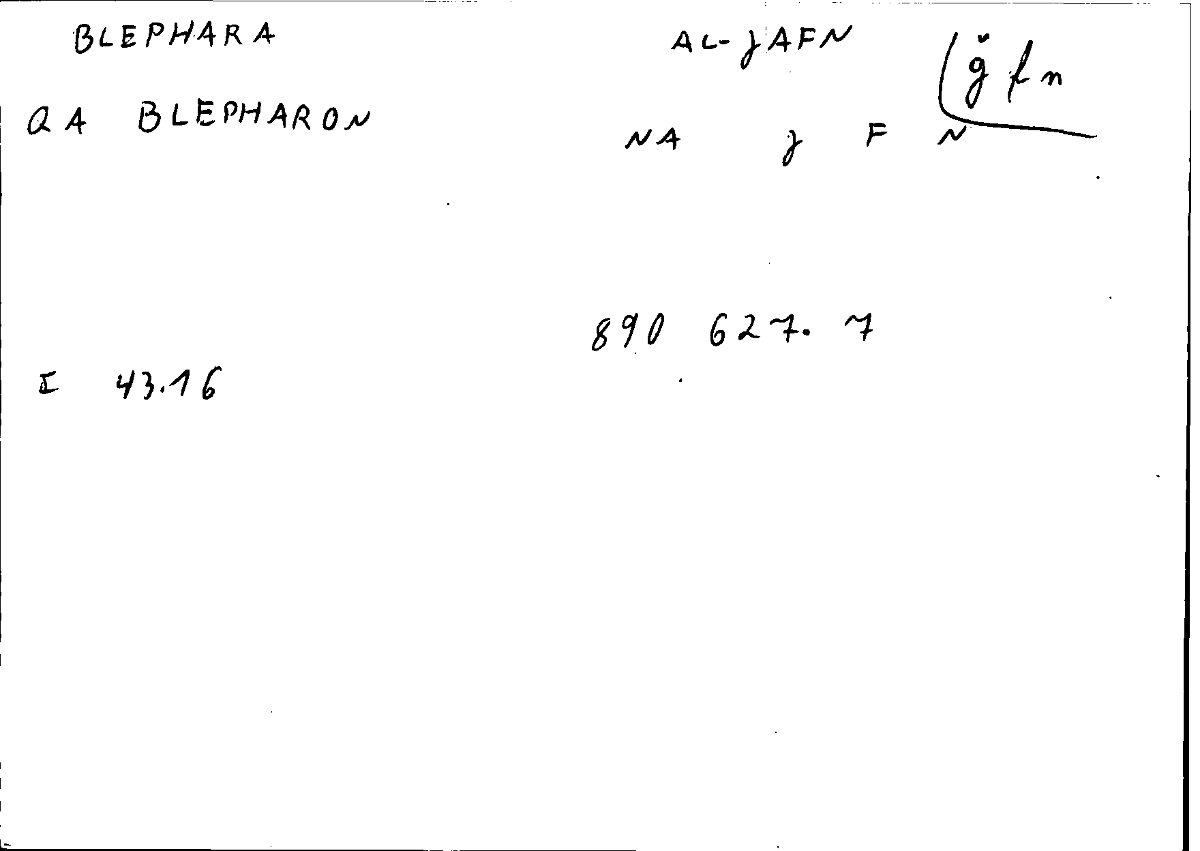 BLEPHARA AL-JAFN ǧfn
QA BLEPHARON NA J F N
890 627.7
I 43.16